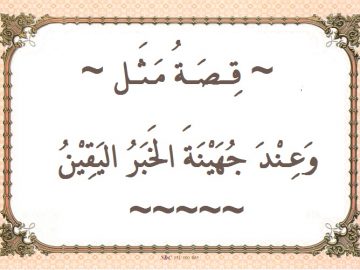 ~ قِـصَـةُ مَثَـل ~
وَعِنْدَ جُهَيْنَةَ الخَبَرُ اليَقِيْنُ
~~~~~